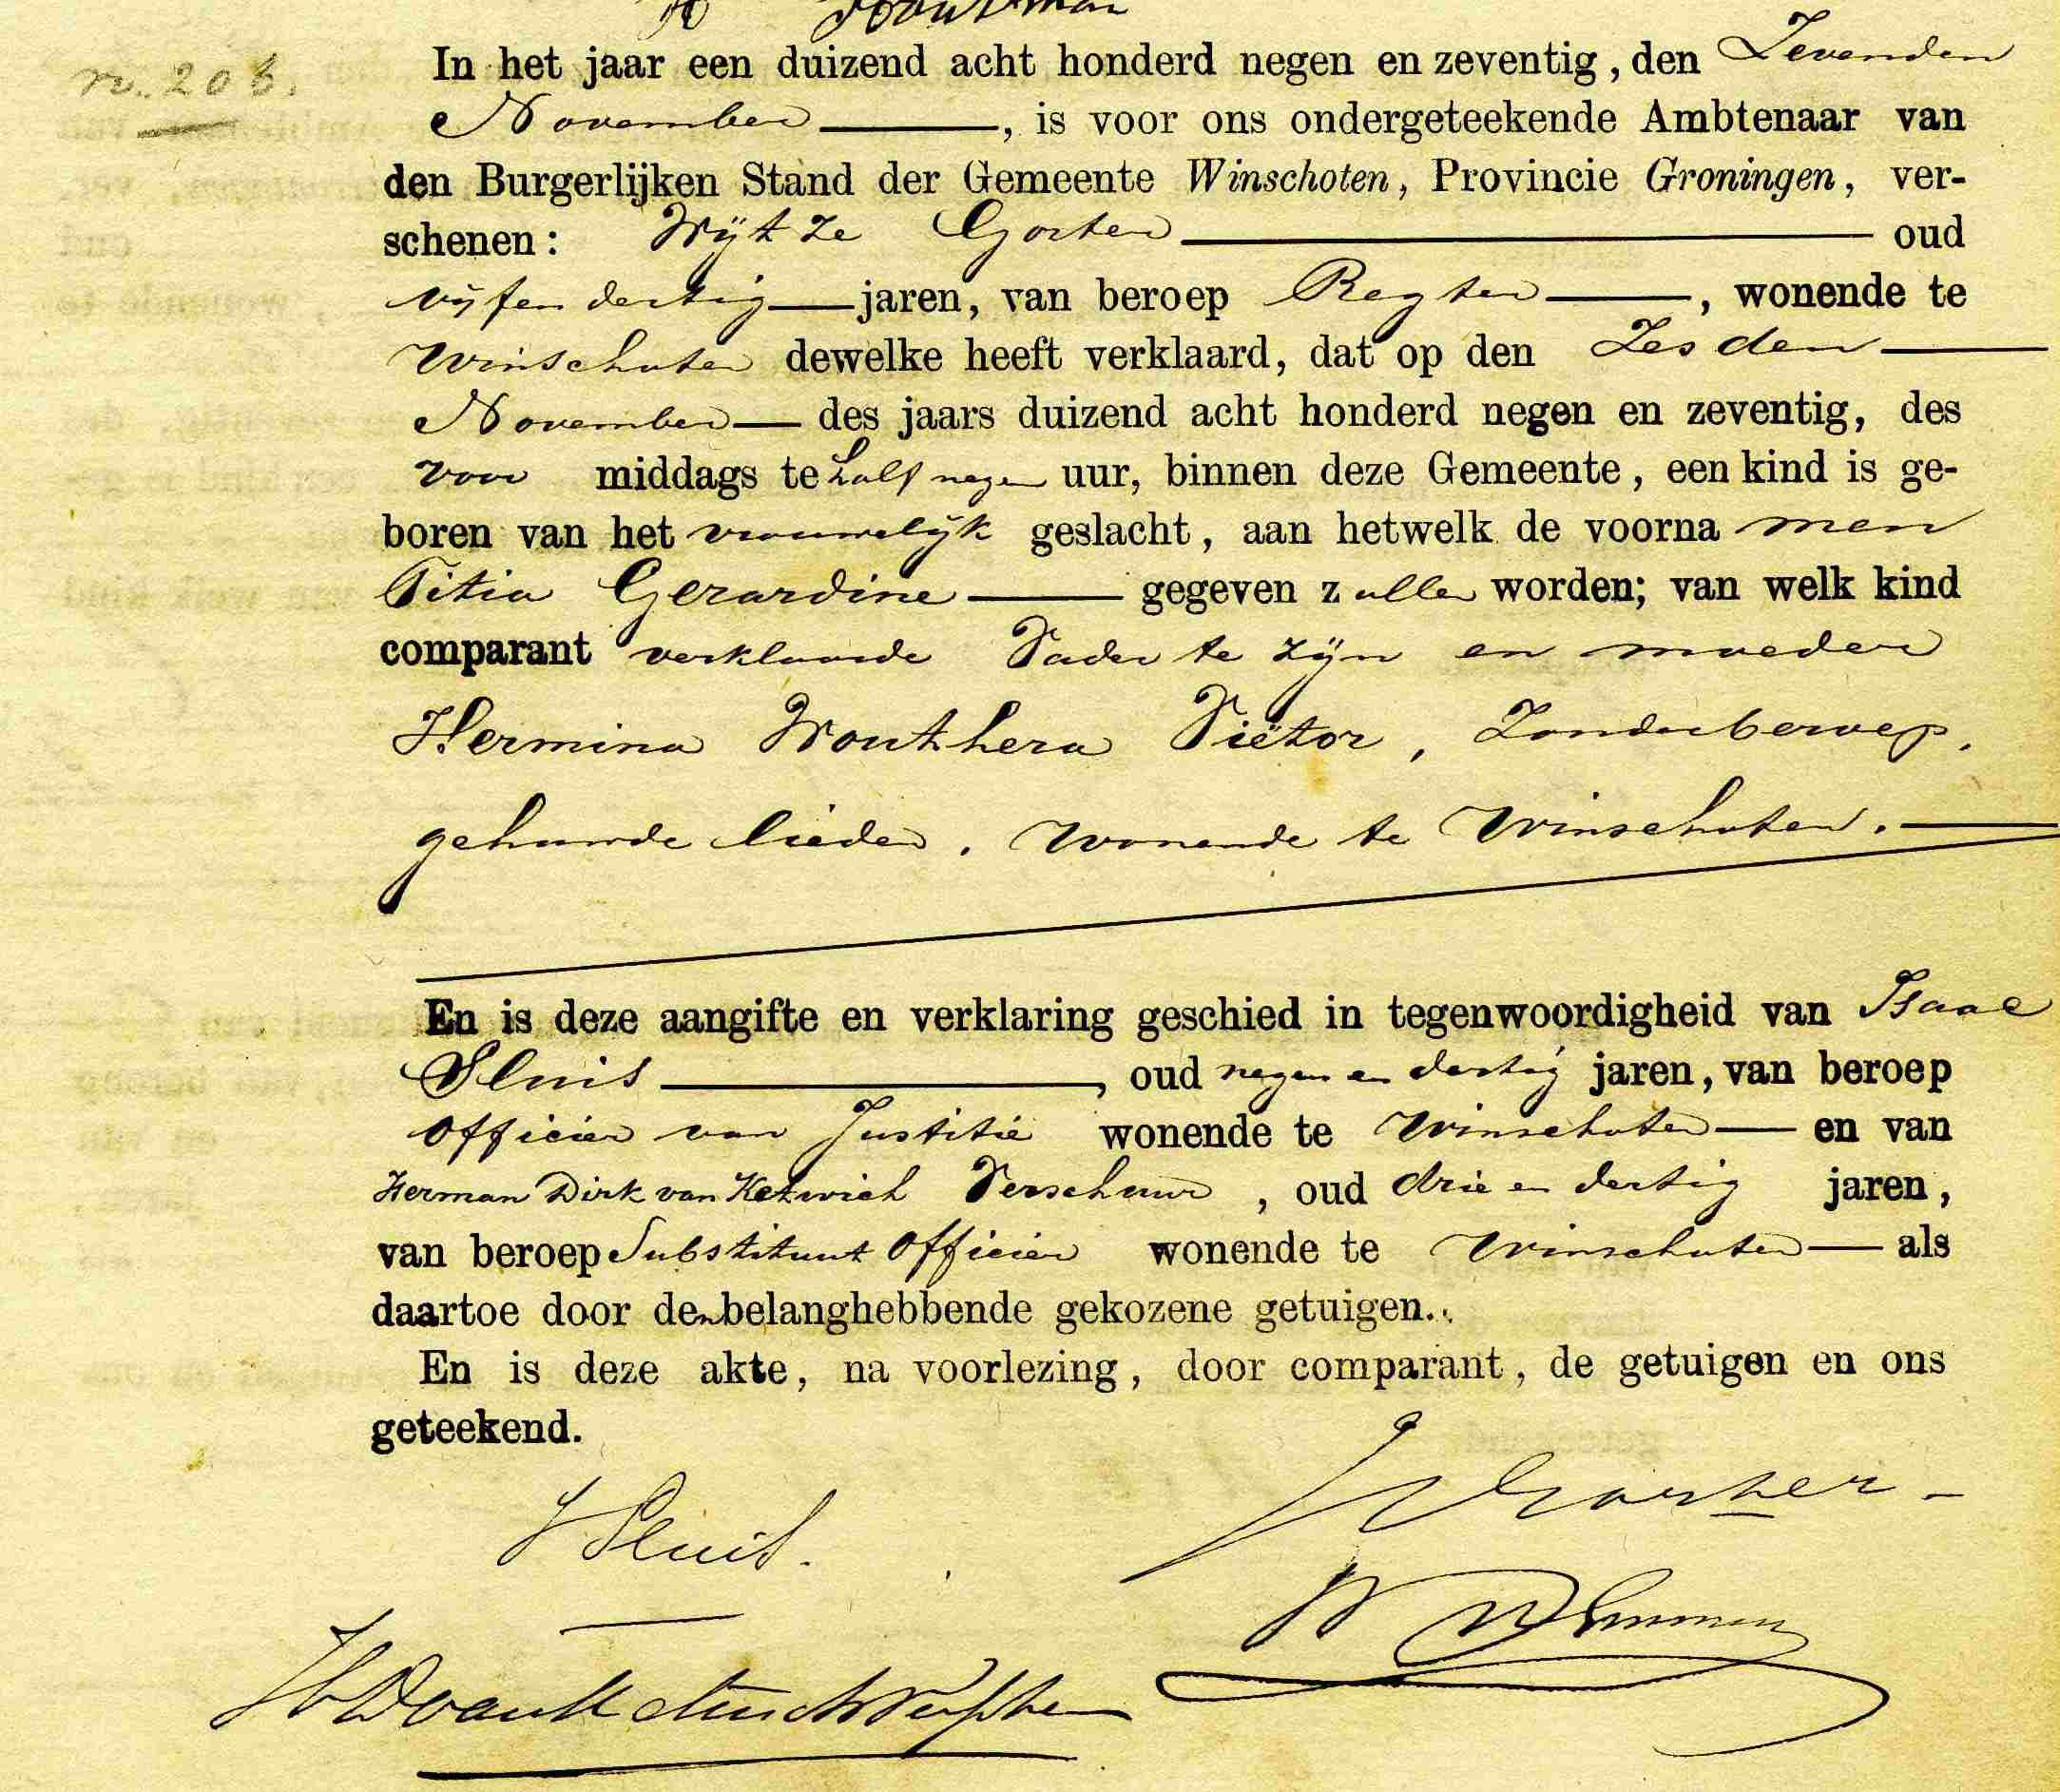 Houtman
n. 206.
In het jaar een duizend acht honderd negen en zeventig, den Zevenden
November, is voor ons ondergeteekende Ambtenaar van
den Burgerlijken Stand der Gemeente Winschoten, Provincie Groningen, ver-
schenen: Wijtze Gorter oud
vijf en dertig jaren, van beroep Regter, wonende te
Winschoten dewelke heeft verklaard, dat op den Zesden
November des jaars duizend acht honderd negen en zeventig, des
voor middags te half negen uur, binnen deze Gemeente, een kind is ge-
boren van het vrouwelijk geslacht, aan hetwelk de voorna men
Titia Gerardine gegeven zullen worden; van welk kind
comparant verklaarde Vader te zijn en moeder
Hermina Wouthera Viëtor, Zonder beroep,
gehuwde lieden, wonende te Winschoten.
En is deze aangifte en verklaring geschied in tegenwoordigheid van Isaac
Sluis, oud negen en dertig jaren, van beroep
Officier van Justitie wonende te Winschoten en van
Herman Dirk van Ketwich Verschuur, oud drie en dertig jaren,
van beroep Substituut Officier wonende te Winschoten als
daartoe door den belanghebbende gekozene getuigen.
En is deze akte, na voorlezing, door comparant, de getuigen en ons
geteekend.
W Gorter
I Sluis.
HD van Ketwich Verschuur